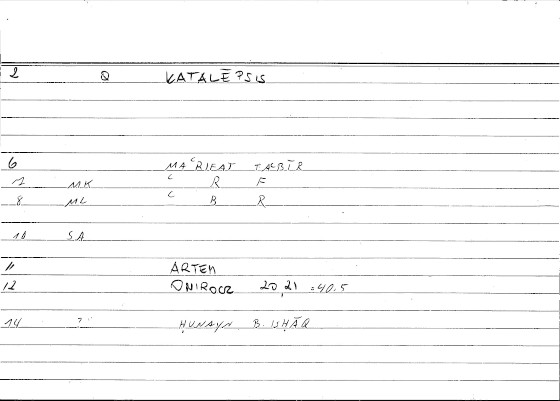 2 Q KATALĒPSIS
6 MAʿRIFAT TAʿBĪR
7 MK ʿ R F
8 ML ʿ B R
10 SA
11 ARTEM
12 ONIROCR 20,21 =40.5
14 ? ḤUNAYN B. ISḤĀQ